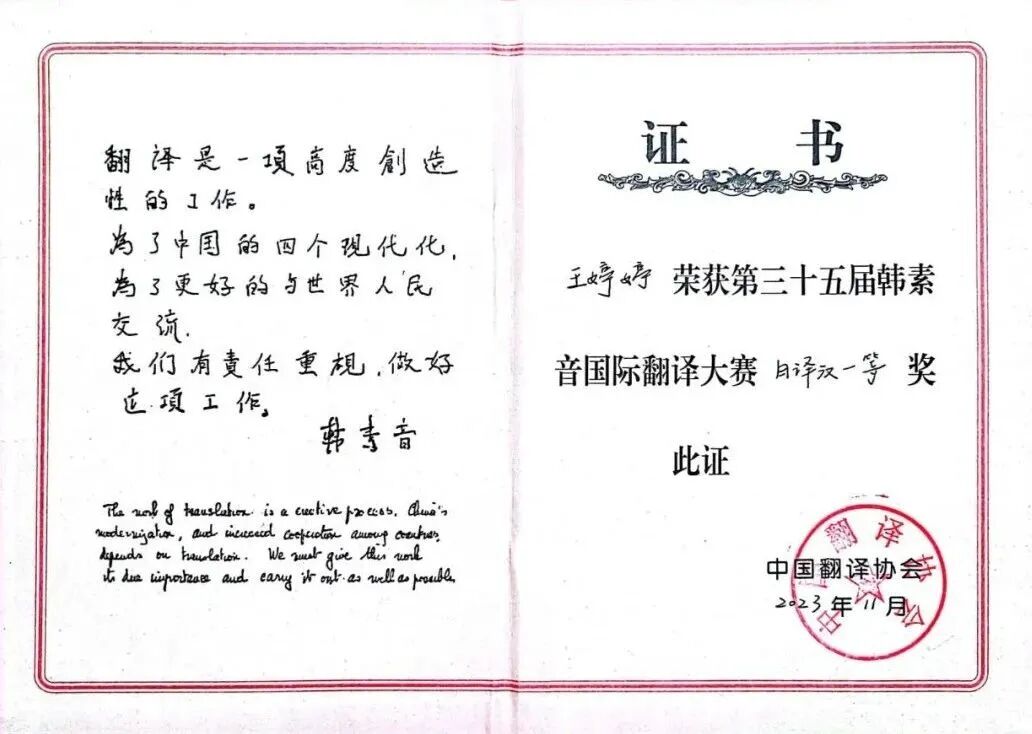 翻译是一項高度創造
性的工作。
為了中国的四个现代化,
為了更好的与世界人民
交流.
我们有責任重視,做好
这項工作。
韩素音
The work of translation is a creative process. China's
modernization, and increased cooperation among countries,
depends on translation. We must give this work
its due importance and carry it out as well as possible.
证 书
王婷婷 荣获第三十五届韩素
音国际翻译大赛 日译汉一等 奖
此证
中国翻译协会
中国翻译协会
2023年11月